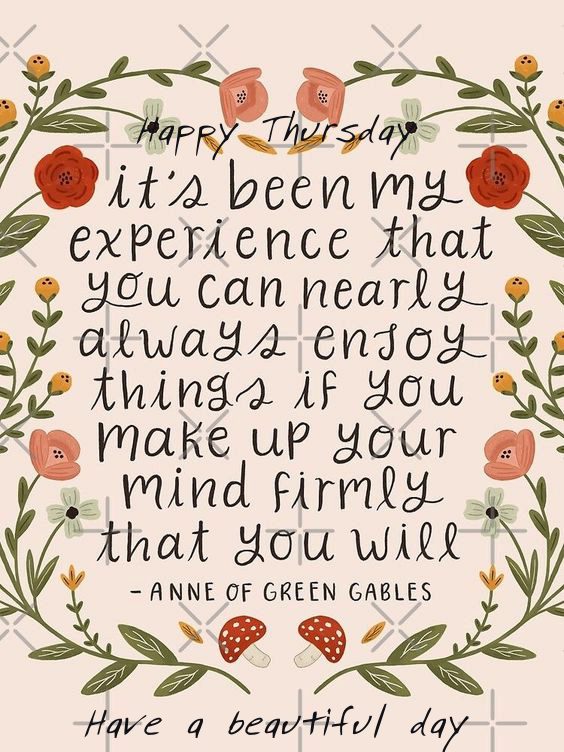 Happy Thursday
it's been my
experience that
you can nearly
always enjoy
things if you
make up your
mind firmly
that you will
- ANNE OF GREEN GABLES
Have a beautiful day